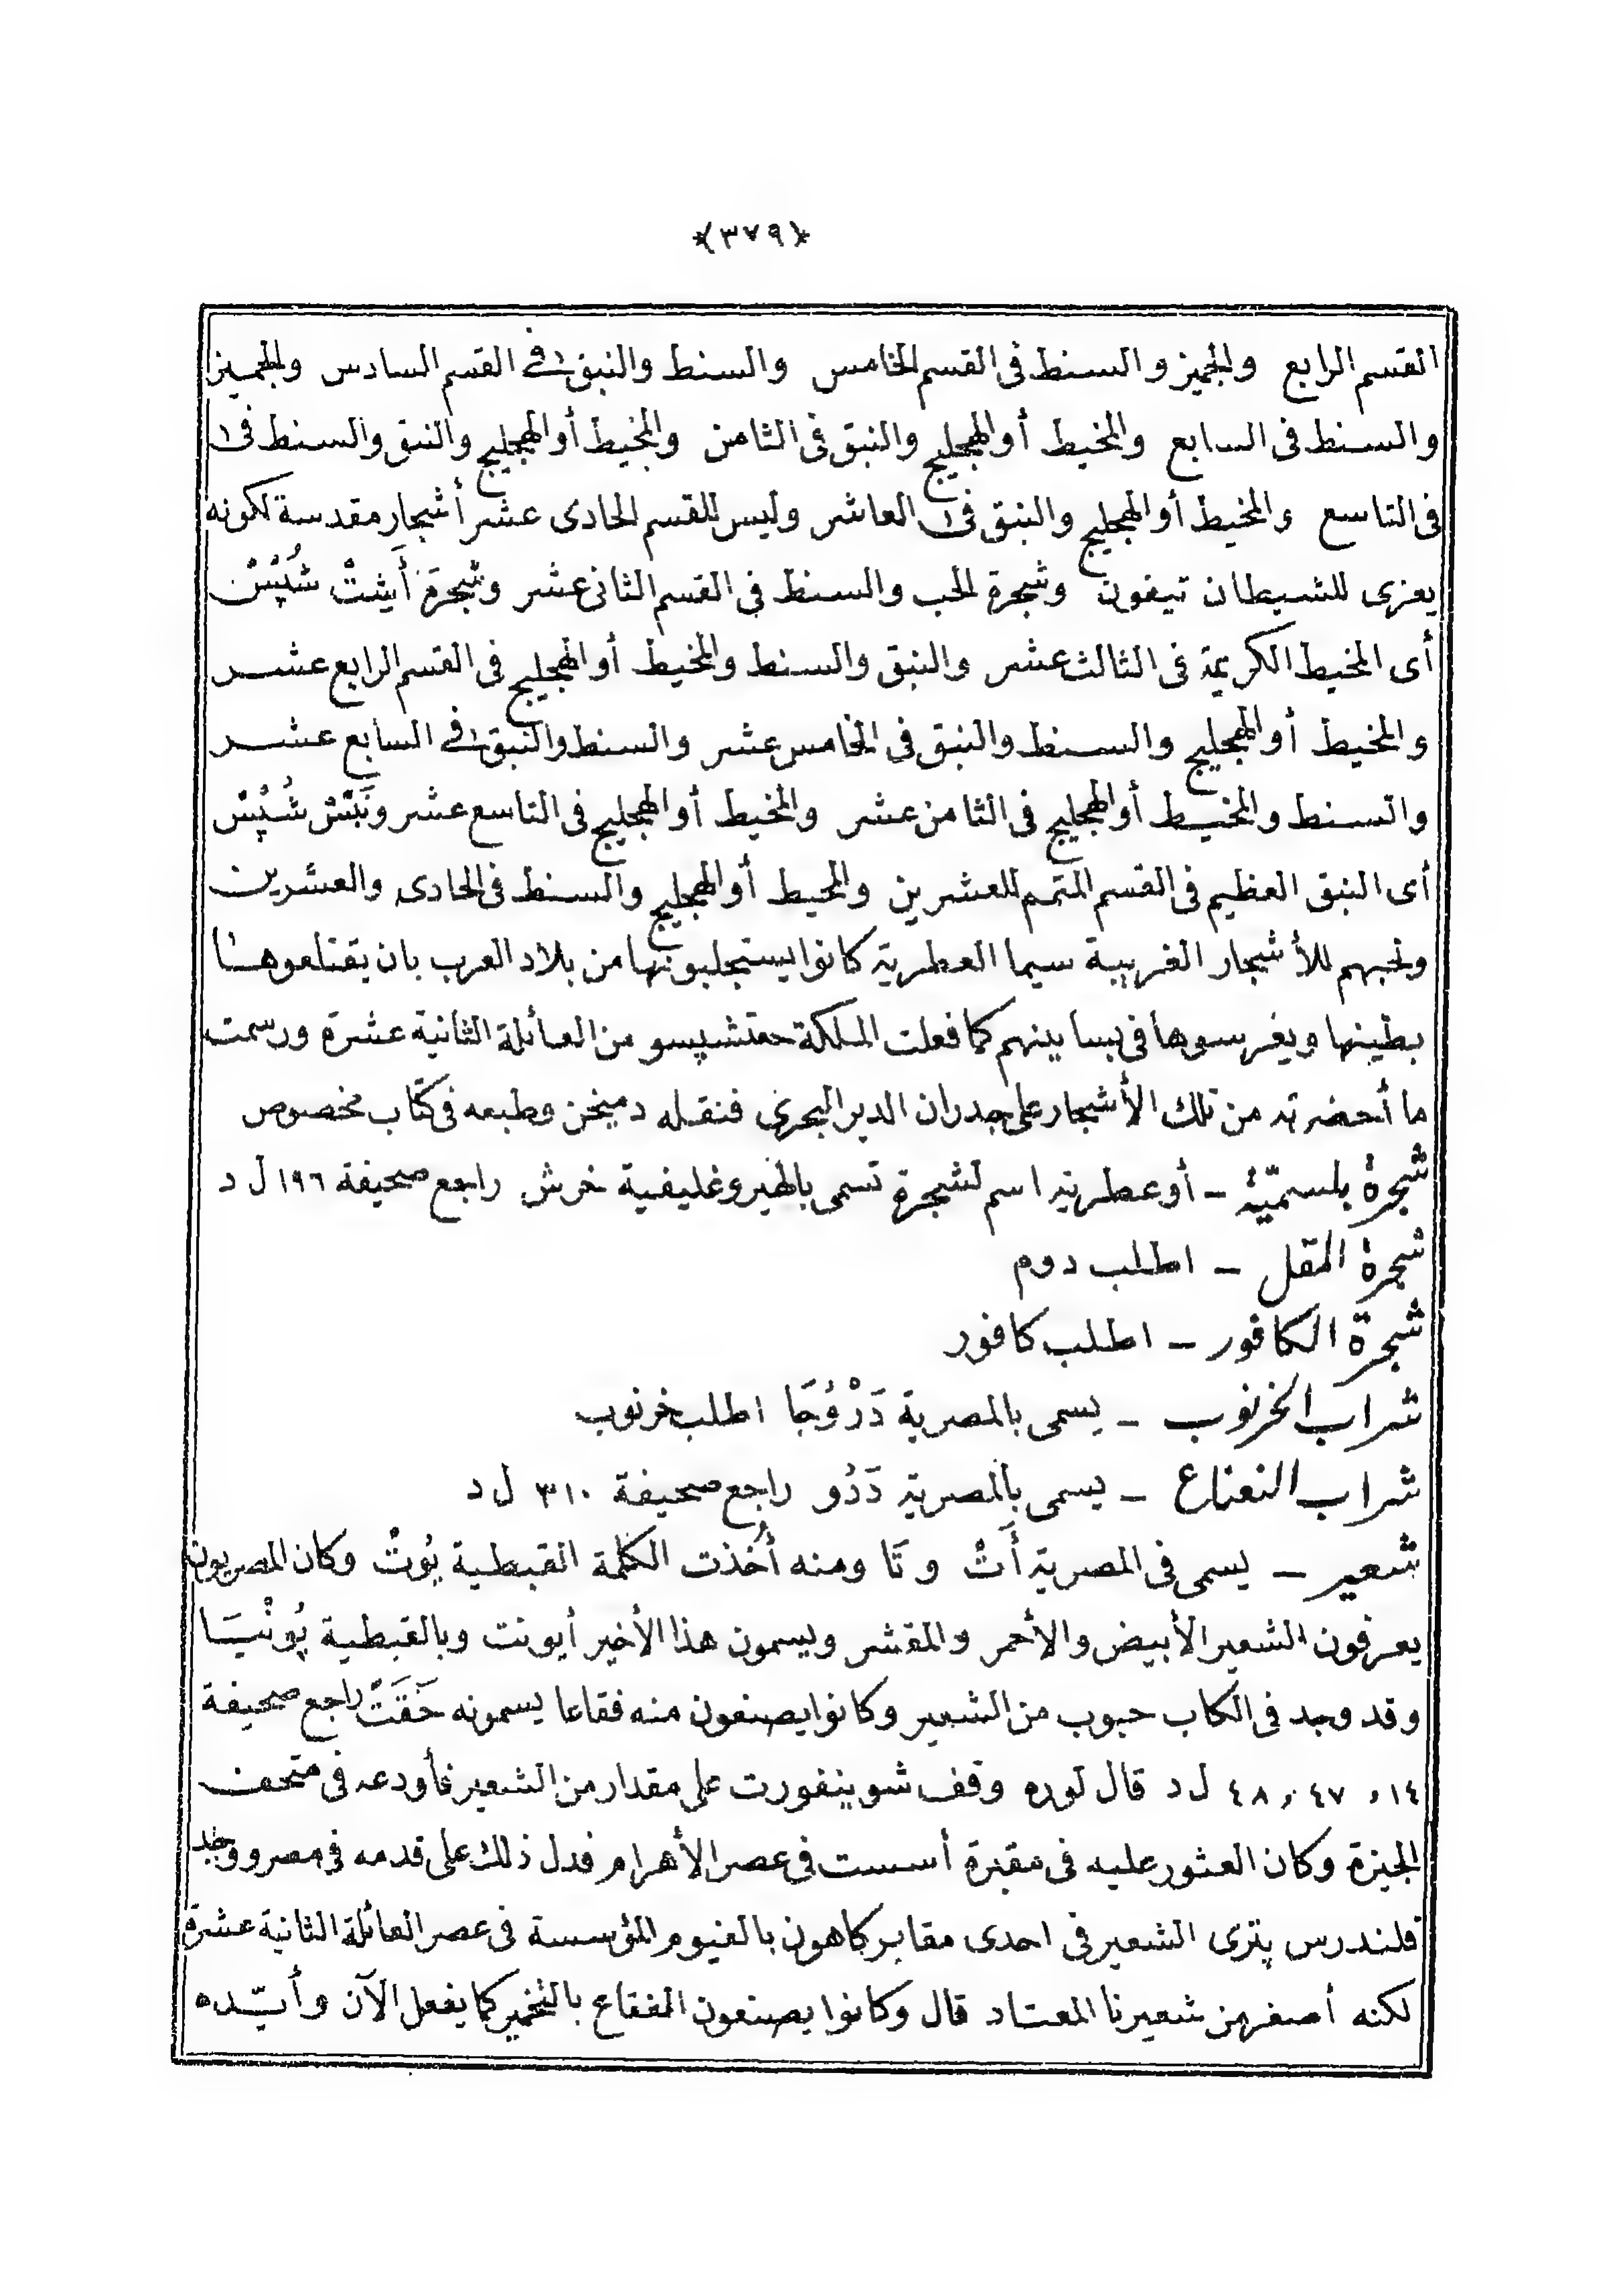 ﴿٣٧٩﴾
القسم الرابع والجميز والسنط فى القسم الخامس والسنط والنبق فى القسم السادس والجميز
والسنط فى السابع والمخيط أو الهجليج والنبق فى الثامن والمخيط أو الهجليج والنبق والسنط فى
فى التاسع والمخيط أو الهجليج والنبق فى العاشر وليس للقسم الحادى عشر أشجار مقدسة لكونه
يعزى للشيطان تيفون وشجرة الحب والسنط فى القسم الثانى عشر وشجرة أَشِتْ شُپْسْ
أى المخيط الكريمة فى الثالث عشر والنبق والسنط والمخيط أو الهجليج فى القسم الرابع عشر
والمخيط أو الهجليج والسنط والنبق فى الخامس عشر والسنط والنبق فى السابع عشر
والسنط والمخيط أو الهجليج فى الثامن عشر والمخيط أو الهجليج فى التاسع عشر ونَبْسْ شُپْسْ
أى النبق العظيم فى القسم المتمم للعشرين والمخيط أو الهجليج والسنط فى الحادى والعشرين
ولحبهم للأشجار الغريبة سيما العطرية كانوا يستجلبونها من بلاد العرب بان يقتلعوها
بطينها ويغرسوها فى بساتينهم كما فعلت الملكة حعتشپسو من العائلة الثانية عشرة ورسمت
ما أحضرته من تلك الأشجار على جدران الدير البحرى فنقله دميخن وطبعه فى كتاب مخصوص
شجرة بلسميّة – أو عطرية اسم لشجرة تسمى بالهيروغليفية خرش راجع صحيفة ١٩٦ ل د
شجرة المقل – اطلب دوم
شجرة الكافور – اطلب كافور
شراب الخرنوب – يسمى بالمصرية دَرْوُجَا اطلب خرنوب
شراب النعناع – يسمى بالمصرية دَدُو راجع صحيفة ٣١٠ ل د
شعير – يسمى فى المصرية أَتْ وتَا ومنه أُخذت الكلمة القبطية يُوتْ وكان المصريون
يعرفون الشعير الأبيض والأحمر والمقشر ويسمون هذا الأخير أيونت وبالقبطية پُونْتِيَا
وقد وجد فى الكاب حبوب من الشعير وكانوا يصنعون منه فقاعا يسمونه حَقَتْ راجع صحيفة
١٤ و ٤٧ و ٤٨ ل د قال لوره وقف شوينفورت على مقدار من الشعير فأودعه فى متحف
الجيزة وكان العثور عليه فى مقبرة أسست فى عصر الأهرام فدل ذلك على قدمه فى مصر ووجد
فلندرس پترى الشعير فى احدى مقابر كاهون بالفيوم المؤسسة فى عصر العائلة الثانية عشرة
لكنه أصغر من شعيرنا المعتاد قال وكانوا يصنعون الفقاع بالتخمير كما يفعل الآن وأيّده